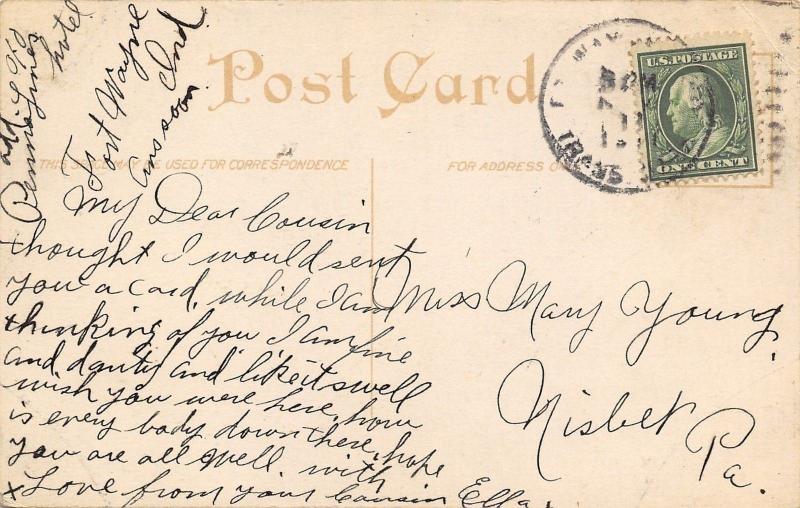 add c/o
Pennsy Lines
hotel
Fort Wayne
Ind
Ans soon
Post Card
THIS SPACE MAY BE USED FOR CORRESPONDENCE
FOR ADDRESS
U.S. POSTAGE
ONE CENT
My Dear Cousin
thought I would sent
you a card, while I am
thinking of you I am fine
and danty and like it swell
wish you were here, how
is every body down there, hope
you are all well. with
x Love from your Cousin Ella.
Miss Mary Young,
Nisbet
Pa.